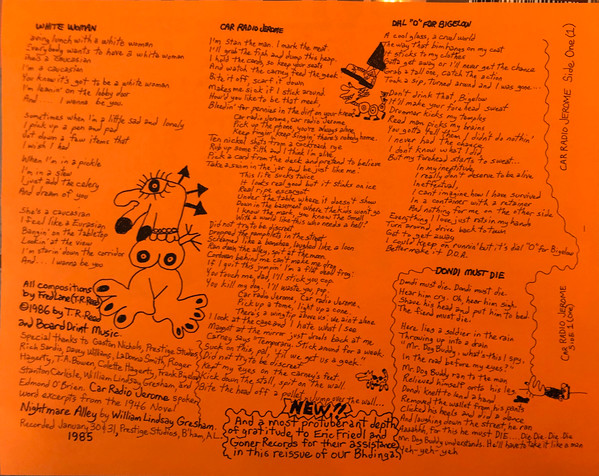 WHITE WOMAN
Having lunch with a white woman
Everybody wants to have a white woman
And she's caucasian
You know it's got to be a white woman
I'm leanin' on the lobby door
And..... I wanna be you.
Sometimes when I'm a little sad and lonely
I pick up a pen and pad
Jot down a few items that
I wish I had
When I'm in a pickle
I'm in a stew
I just add the celery
And dream of you
She's a caucasian
I feel like a Eurasian
Bangin' on the tabletop
Lookin' at the view
I'm starin' down the corridor
And.... I wanna be you
All compositions
by Fred Lane (T.R. Reed)
©1986 by T.R. Reed
and Board Drint Music.
Special thanks to Gaston Nichols, Prestige Studios,
Rick Sanders, Davey Williams, LaDonna Smith, Roger
Hagarty, T.A. Bourne, Colette Hagarty, Frank Buyloa
Stanton Carlisle, William Lindsay Gresham, and
Edmond O'Brien. Car Radio Jerome spoken
word excerpts from the 1946 Novel
Nightmare Alley by William Lindsay Gresham.
Recorded January 30 & 31, Prestige Studios, B'ham, AL.
1985
CAR RADIO JEROME
I'm stan the man. I mark the meat.
I'll grab the fish and dump the heap.
I hold the cards so keep your seats
And watch the carney feed the geek
Bite it off, scarf it down
Makes me sick if I stick around.
How'd you like to be that need,
Bleedin' for pennies in the dirt on your knees
Car radio Jerome, car radio Jerome,
Pick up the phone, you're always alone,
Keep fingers keep singing there's nobody home.
Ten nickel shots from a cockroach eye
Rub up some filth and I think I'm alive.
Pick a card from the deck and pretend to believe
Take a swim in the jar and be just like me.
This life sucks twice
It looks real good but it stinks on ice
Real ripe escargot
Under the table where it doesn't show
Down in the basement where the kids won't go
I know the mark you know the smell
With a world like this who needs a hell?
Did not try to be discreet
Dropped the pamphlets in the street
Screamed like a banshee, laughed like a loon
Ran down the alley, spit at the moon.
Cordman behind me can't make me stop
If I quit this jumpin' I'm a flat dead frog.
You touch me, dad, I'll stick you, cop.
You kill my dog, I'll waste you, pop.
Car Radio Jerome, Car radio Jerome.
Pick up a rock, pick up a cone.
There's a wingtip alone us, we ain't alone
I look at the cage and I hate what I see
Maggot at the mirror just shouts back at me
Carney says "Temporary. Stick around for a week.
Suck on this, pal, 'til we get us a geek."
Did not try to be discreet
Spat my eyes on the carney's feet
Kick down the stall, spit on the wall
Bite the head off a pullet, jump over the wall...
NEW!!
And a most protuberant depth
of gratitude, to Eric Friedl and
Goner Records for their assistance
in this reissue of our Bhdinga.
DIAL "O" FOR BIGELOW
A cool glass, a cruel world
The way that him hangs on my coat
He sticks to my clothes
Gotta get away or I'll never get the chance
Grab a tall one, catch the action
Took a sip, turned around and I was gone...
Don't drink that, Bigelow
He'll make your forehead sweat
Dreamer kicks my temples
Read man picks my brains
You gotta tell them, I didn't do nothin'
I never had the chance
I don't know what I did
But my forehead starts to sweat...
In my ineptitude,
I really don't deserve to be alive.
Ineffectual,
I can't imagine how I have survived
In a container with a retainer
And nothing for me on the other side
Everything I own, just rots in my hands
Turn around, drive back to town
Got to get away
I could keep on runnin' but it's dial "O" for Bigelow
Better make it D.O.A.
DONDI MUST DIE
Dondi must die. Dondi must die.
Hear him cry. Oh, hear him sigh.
Shave his head and put him to bed
The fiend must die.
Here lies a soldier in the rain
Throwing up into a drain
"Mr. Dog Buddy, what's this I spy,
In the road before my eyes?"
Mr. Dog Buddy ran to the man
Relieved himself onto his leg
Dondi knelt to lend a hand
Removed the wallet from his pants
Clicked his heels and did a dance
And laughing down the street, he ran
Aaaahhh, for this he must DIE... Die. Die. Die. Die
Mr. Dog Buddy understands. He'll have to take it like a man
Yeh-yeh-yeh
CAR RADIO JEROME Side One (1)
CAR RADIO JEROME
Side 1 (One)